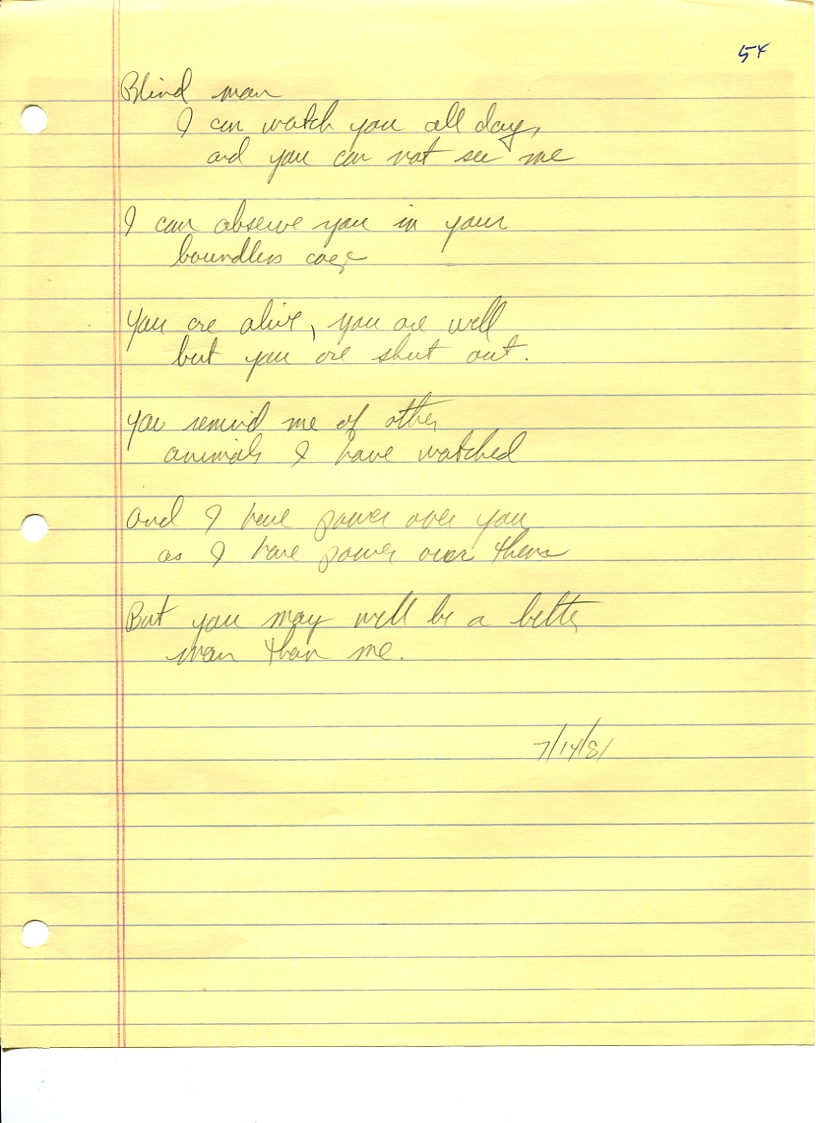 54
Blind man
I can watch you all day,
and you can not see me
I can observe you in your
boundless cage
You are alive, you are well
but you are shut out.
You remind me of other
animals I have watched
And I have power over you
as I have power over them
But you may well be a better
man than me.
7/14/81